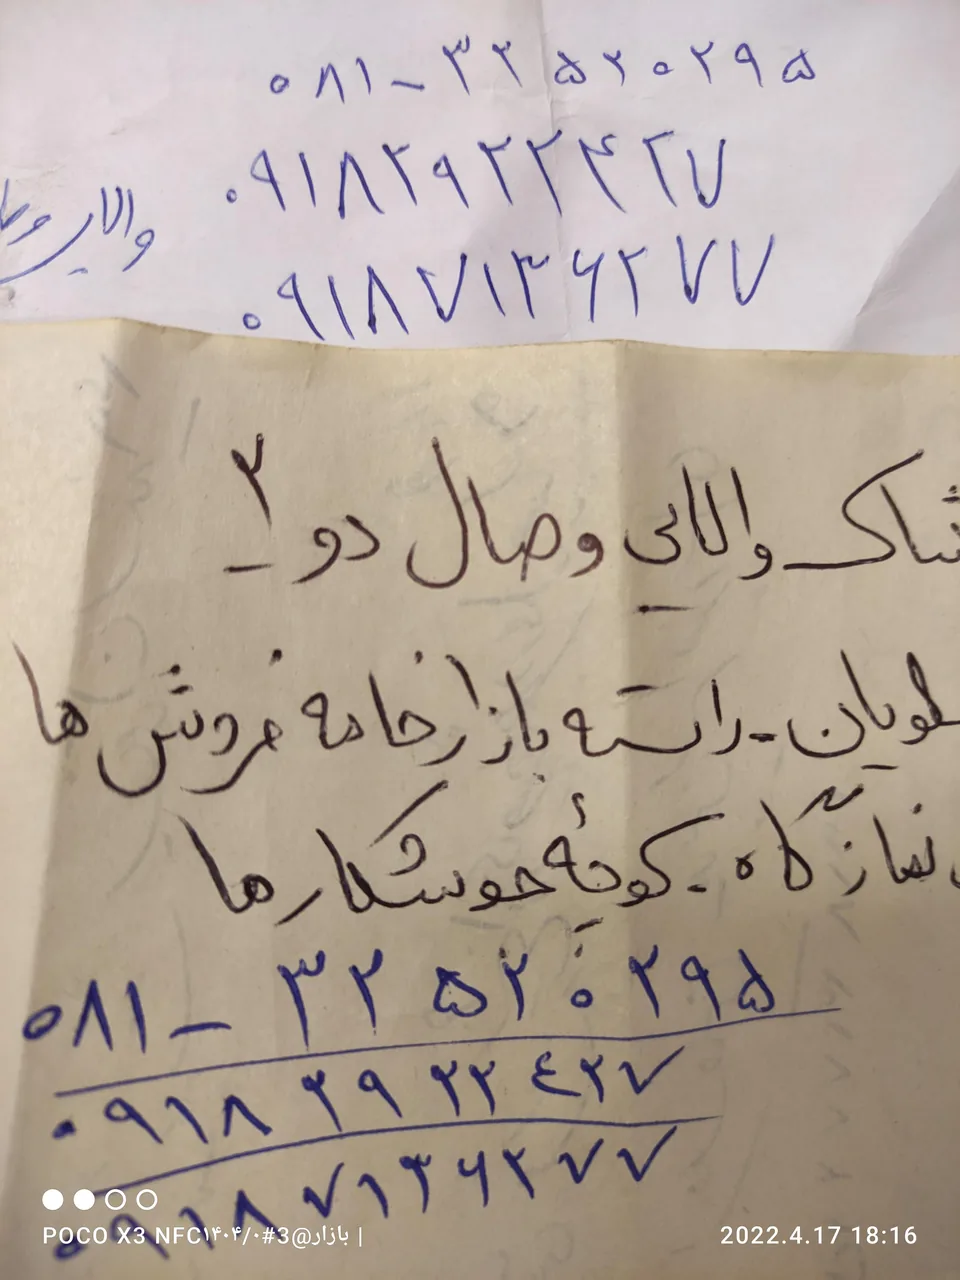 ۰۸۱-۳۲۵۲۰۲۹۵
۰۹۱۸۲۹۲۲۴۲۷
والایی
۰۹۱۸۷۱۳۶۲۷۷
والایی وصال دو ۲
راسته بازار خامه فروش ها
نمازگاه - کوچهٔ جوشکارها
۰۸۱-۳۲۵۲۰۲۹۵
۰۹۱۸۲۹۲۲۴۲۷
۰۹۱۸۷۱۳۶۲۷۷
POCO X3 NFC۱۴۰۴/۰#3@بازار |
2022.4.17 18:16